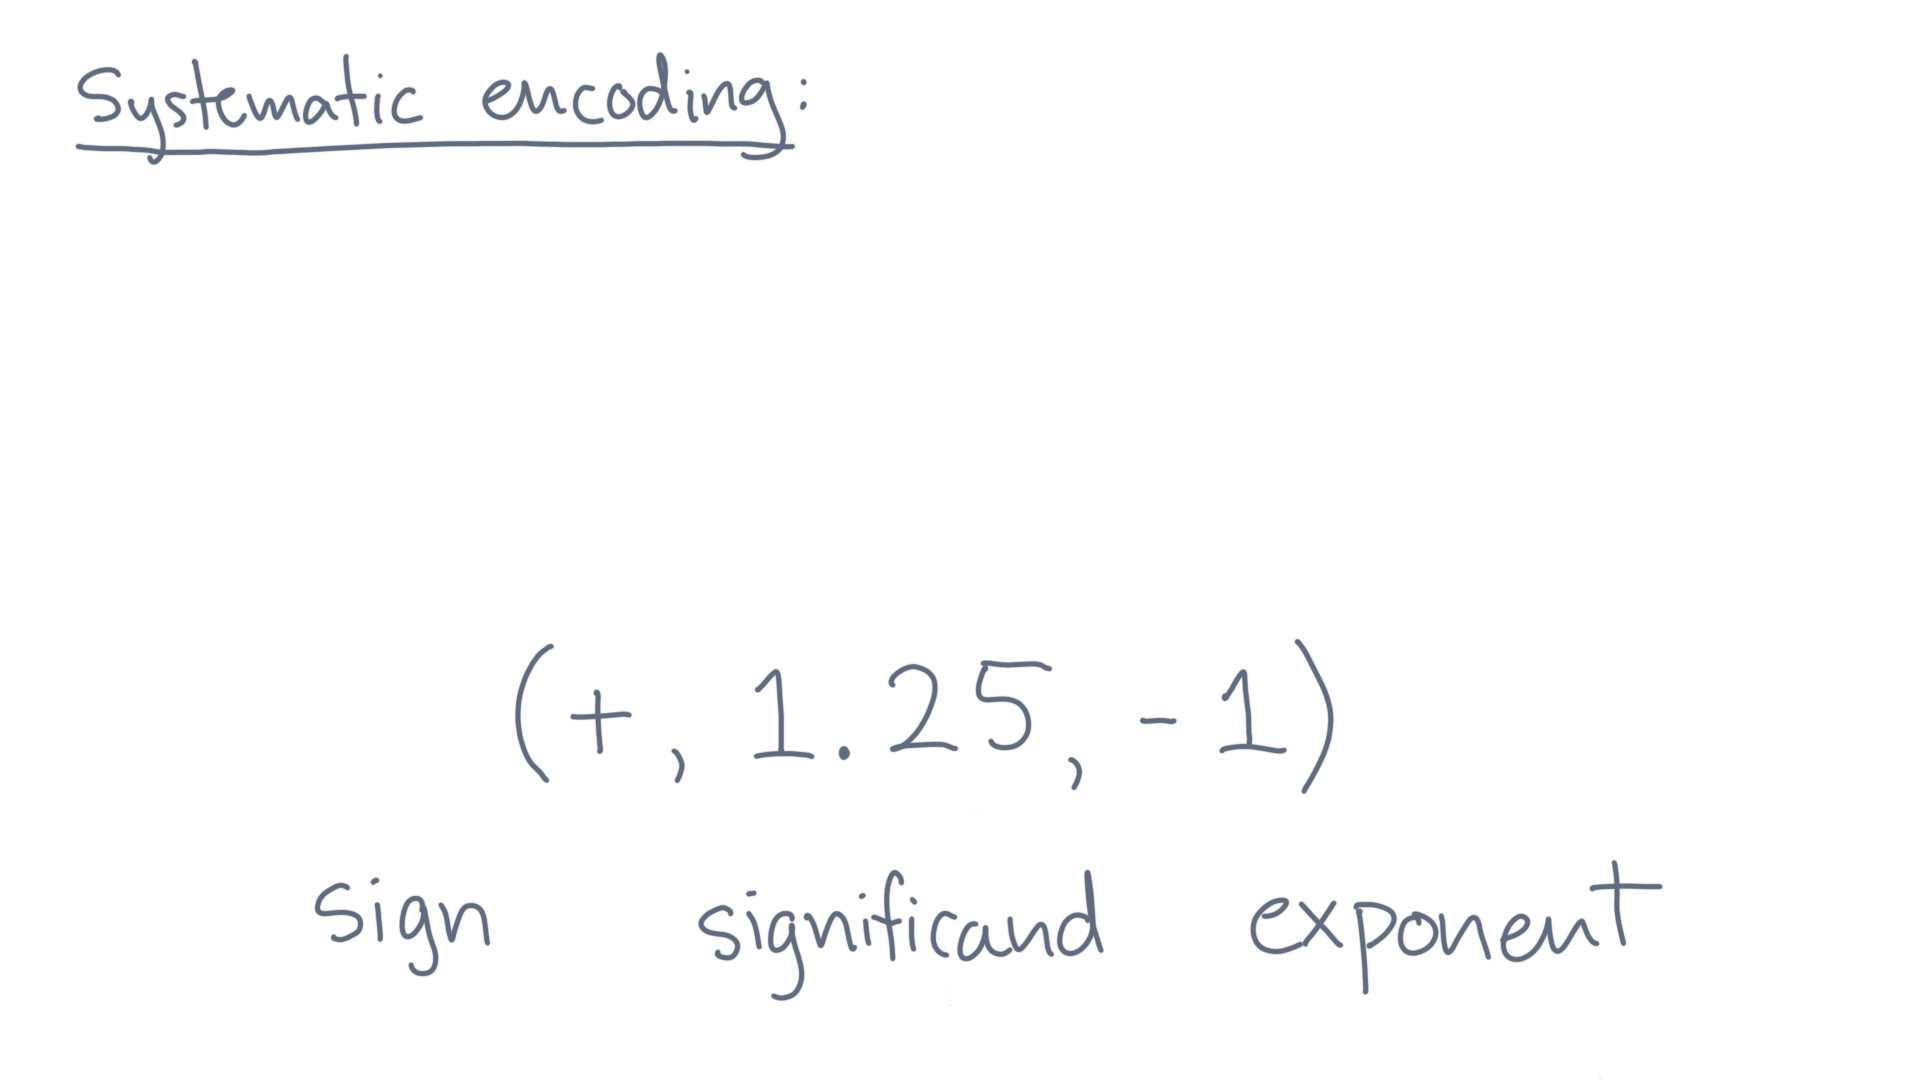 Systematic encoding:
(+, 1.25, -1)
sign significand exponent